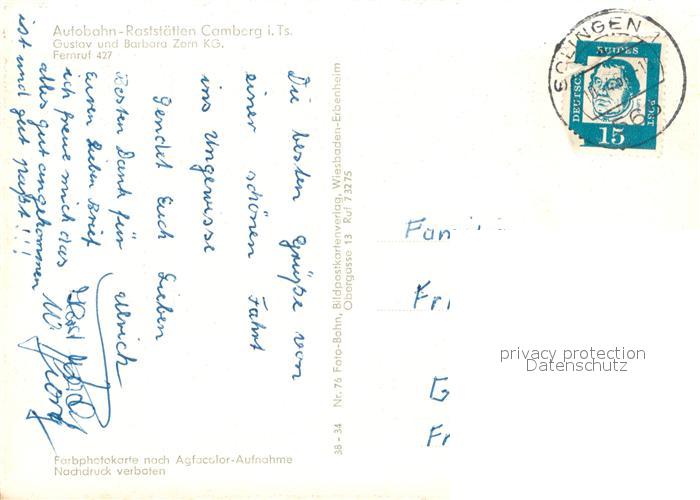 Autobahn-Raststätten Camberg i.Ts.
Gustav und Barbara Zern KG.
Fernruf 427
Die besten Grüße von
einer schönen Fahrt
ins Ungewisse
sendet Euch Lieben
Ulrich
Besten Dank für
Euren lieben Brief
ich freue mich das
alles gut angekommen
ist und gut paßt!!!
Farbphotokarte nach Agfacolor-Aufnahme
Nachdruck verboten
38-34 Nr. 76 Foto-Bahn, Bildpostkartenverlag, Wiesbaden-Erbenheim
Obergasse 13 Ruf 73275
SOLINGEN 1
DEUTSCHE
BUNDES
POST
15
Fam
Fr
G
Fr
privacy protection
Datenschutz